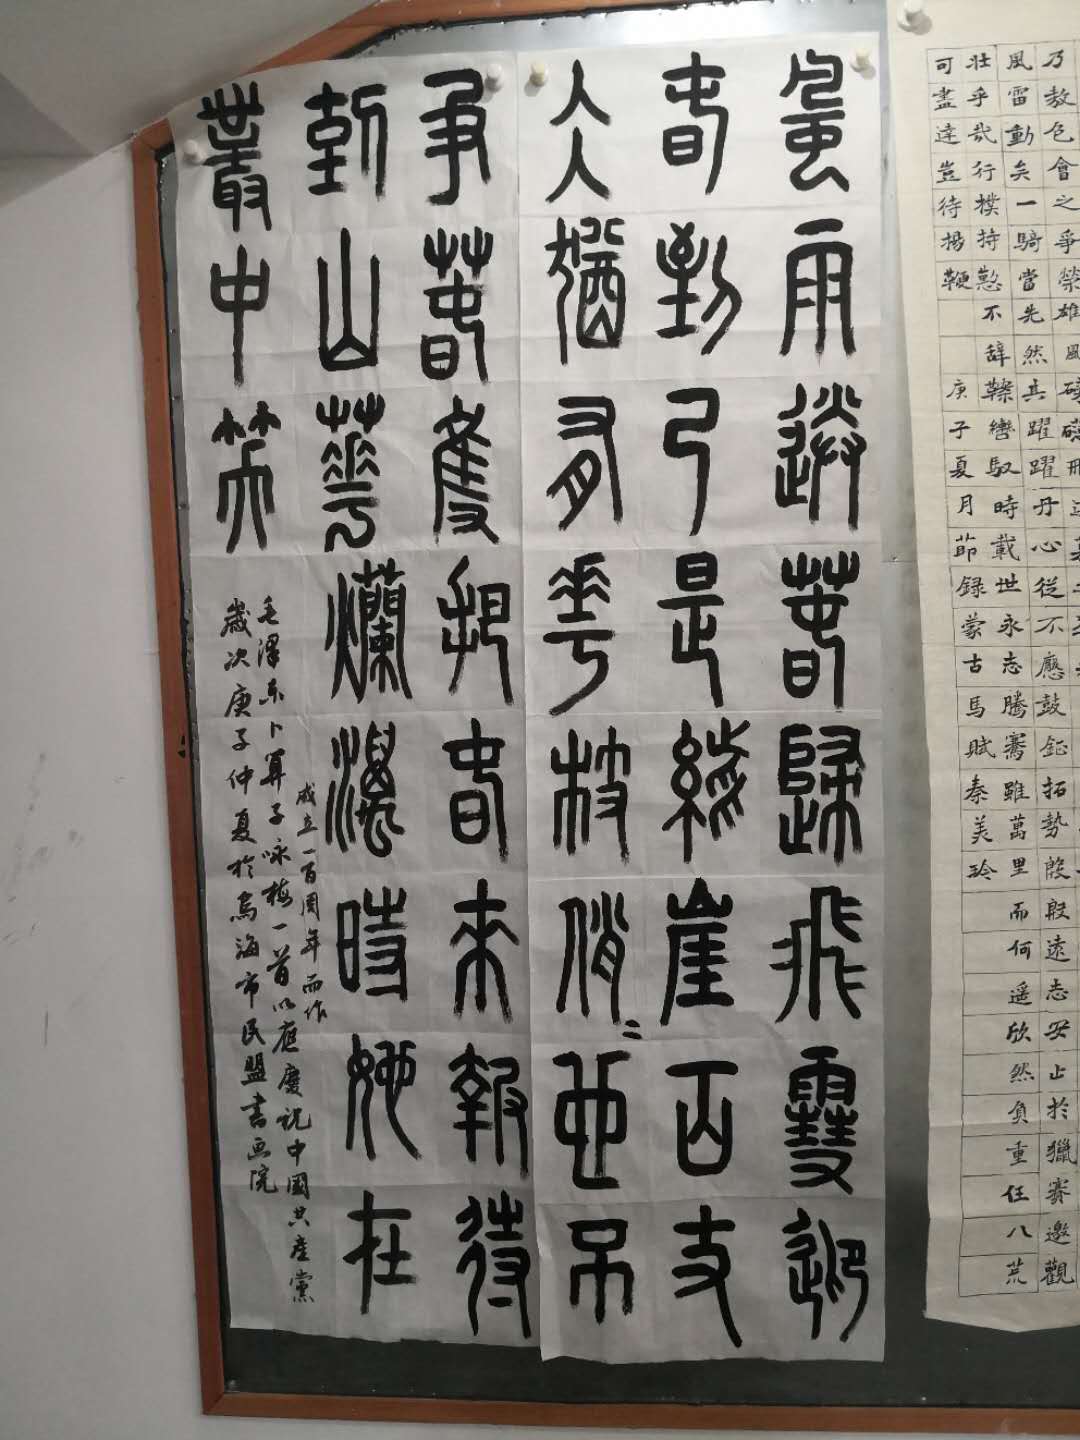 風雨送春歸飛雪迎
春到已是縣崖百丈
仌猶有花枝俏〻也不
爭春隻把春來報待
到山花爛漫時她在
叢中笑
毛澤东卜算子咏梅一首以應慶祝中國共產黨
成立一百周年而作
歲次庚子仲夏於烏海市民盟書画院
乃敖包會之爭榮雄風磅礴飛
風雷動矣一騎當先然其躍躍丹心從不應鼓鉦拓勢殷殷遠志安止於獵賽邀觀
壯乎哉行樸持懃不辭轡馭時載世永志騰騫雖萬里而何遥欣然負重任八荒
可盡達豈待揚鞭
庚子夏月節録蒙古馬賦秦美玲